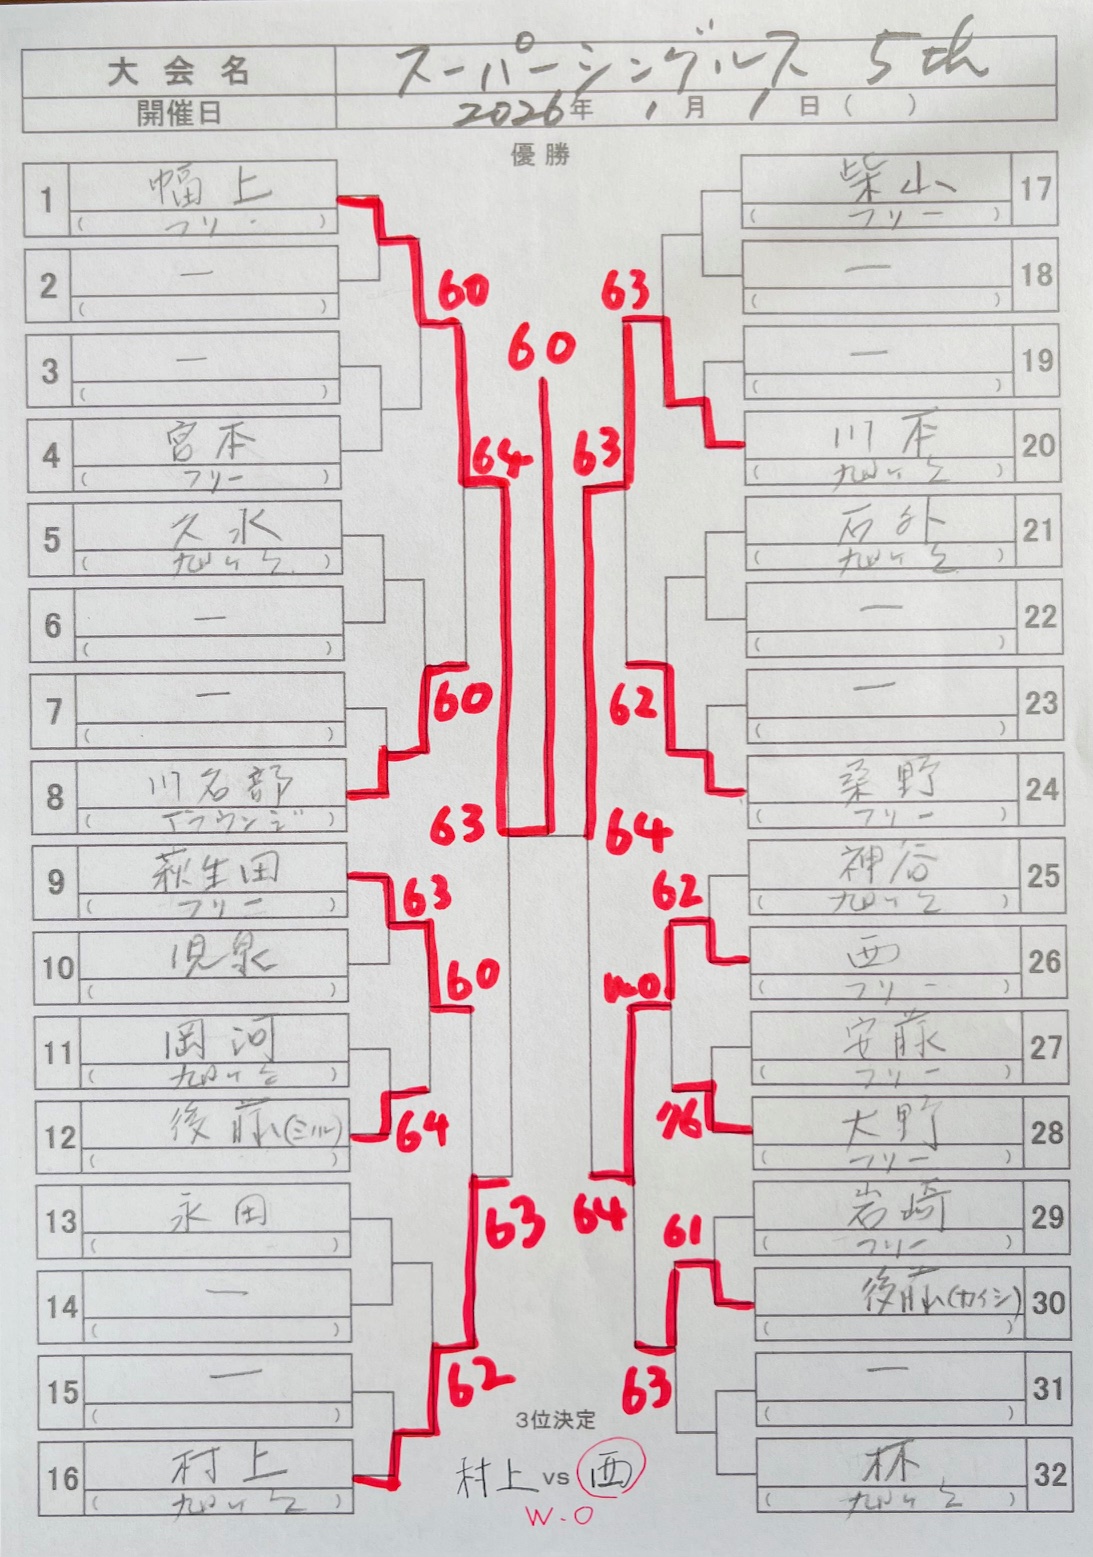 大会名 スーパーシングルス 5th
開催日 2026年 1月 1日( )
優勝
1 幅上
(フリー)
2 ー
( )
3 ー
( )
4 宮本
(フリー)
5 久永
( )
6 ー
( )
7 ー
( )
8 川名部
( )
9 萩生田
(フリー)
10 児泉
( )
11 岡河
( )
12 後藤(ミノル)
( )
13 永田
( )
14 ー
( )
15 ー
( )
16 村上
( )
60
64
60
63
63
60
64
63
62
60
63
63
62
64
62
w.o
76
64
61
63
17 柴山
(フリー)
18 ー
( )
19 ー
( )
20 川本
( )
21 石外
( )
22 ー
( )
23 ー
( )
24 桑野
(フリー)
25 神谷
( )
26 西
(フリー)
27 安藤
(フリー)
28 大野
(フリー)
29 岩崎
(フリー)
30 後藤(カイシ)
( )
31 ー
( )
32 林
( )
3位決定
村上 vs 西
W.O